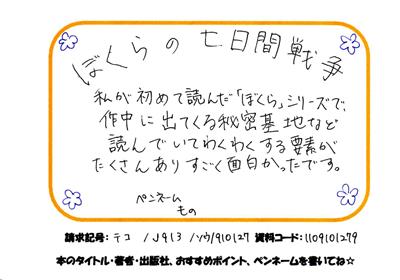 ぼくらの七日間戦争
私が初めて読んだ「ぼくら」シリーズで、
作中に出てくる秘密基地など
読んでいてわくわくする要素が
たくさんありすごく面白かったです。
ペンネーム
もの
請求記号: テコ /J913 /ソウ/910127 資料コード: 1109101279
本のタイトル・著者・出版社、おすすめポイント、ペンネームを書いてね☆